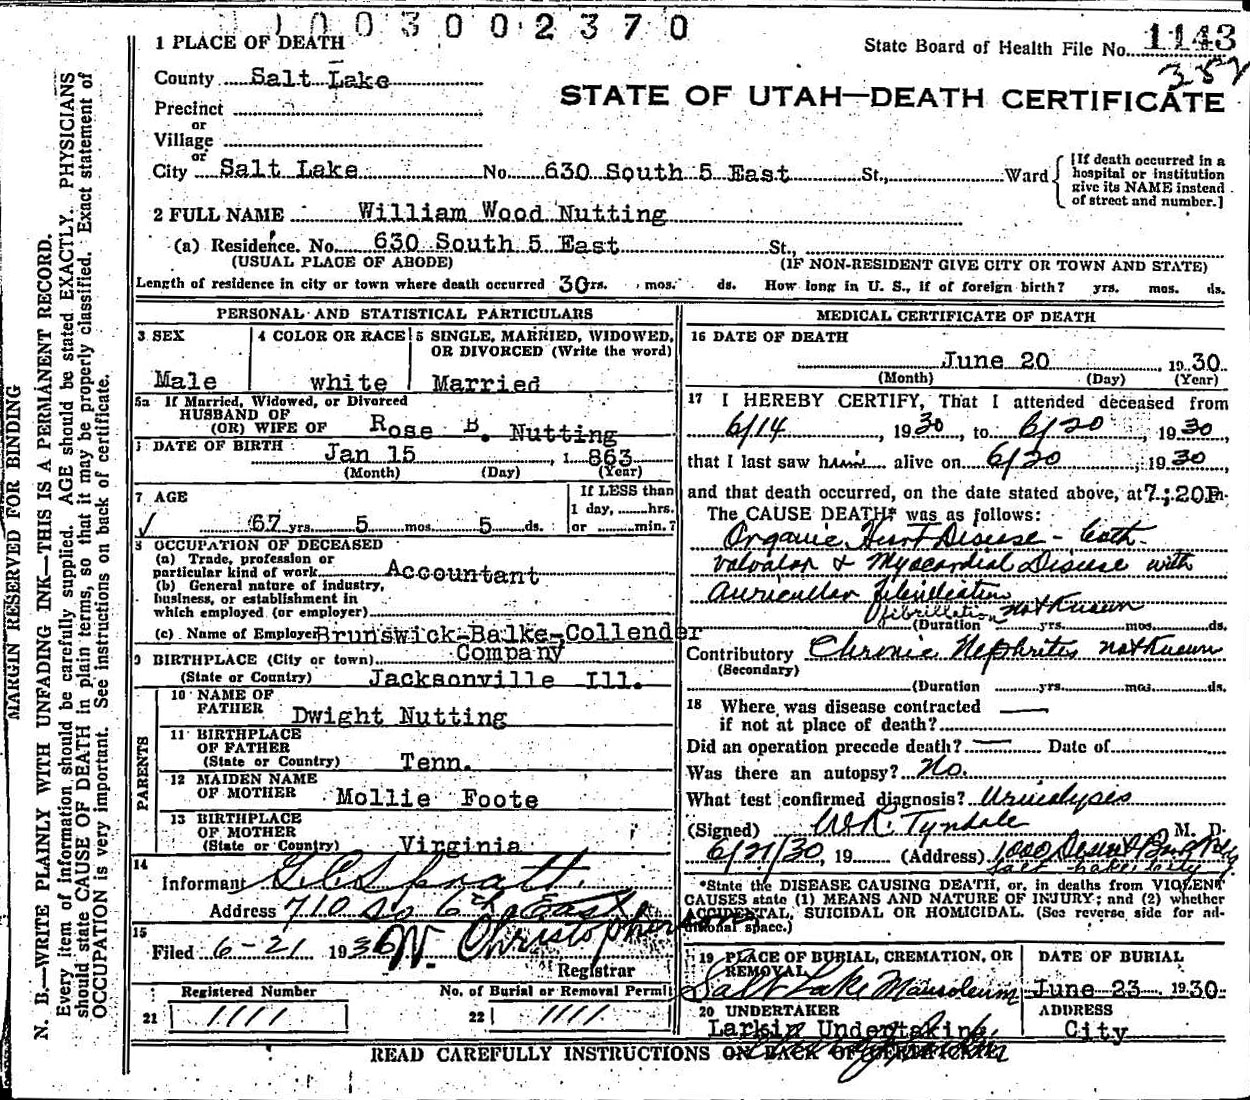 1003002370
1 PLACE OF DEATH
State Board of Health File No. 1143
387
County Salt Lake
STATE OF UTAH—DEATH CERTIFICATE
Precinct
or
Village
or
City Salt Lake No. 630 South 5 East St., Ward
[If death occurred in a hospital or institution give its NAME instead of street and number.]
2 FULL NAME William Wood Nutting
(a) Residence. No. 630 South 5 East St.,
(USUAL PLACE OF ABODE) (IF NON-RESIDENT GIVE CITY OR TOWN AND STATE)
Length of residence in city or town where death occurred 30 yrs. mos. ds. How long in U. S., if of foreign birth? yrs. mos. ds.
PERSONAL AND STATISTICAL PARTICULARS
3 SEX
Male
4 COLOR OR RACE
white
5 SINGLE, MARRIED, WIDOWED,
OR DIVORCED (Write the word)
Married
5a If Married, Widowed, or Divorced
HUSBAND OF
(OR) WIFE OF Rose B. Nutting
DATE OF BIRTH Jan 15, 1863
(Month) (Day) (Year)
7 AGE
67 yrs. 5 mos. 5 ds.
If LESS than
1 day, hrs.
or min.?
8 OCCUPATION OF DECEASED
(a) Trade, profession or
particular kind of work Accountant
(b) General nature of industry,
business, or establishment in
which employed (or employer)
(c) Name of Employer Brunswick-Balke-Collender
Company
9 BIRTHPLACE (City or town)
(State or Country) Jacksonville Ill.
PARENTS
10 NAME OF
FATHER Dwight Nutting
11 BIRTHPLACE
OF FATHER
(State or Country) Tenn.
12 MAIDEN NAME
OF MOTHER Mollie Foote
13 BIRTHPLACE
OF MOTHER
(State or Country) Virginia
14
Informant Spratt
Address 710 So 6th East
15
Filed 6-21 1930 W. Christopherson
Registrar
Registered Number
21 1111
No. of Burial or Removal Permit
22 1111
MEDICAL CERTIFICATE OF DEATH
16 DATE OF DEATH
June 20 1930
(Month) (Day) (Year)
17 I HEREBY CERTIFY, That I attended deceased from
6/14, 1930, to 6/20, 1930,
that I last saw him alive on 6/20, 1930,
and that death occurred, on the date stated above, at 7:20P m.
The CAUSE DEATH* was as follows:
Organic Heart Disease - both
valvular & Myocardial Disease with
Auricular fibrillation
fibrillation not Known
(Duration yrs. mos. ds.
Contributory Chronic Nephritis not Known
(Secondary)
(Duration yrs. mos. ds.
18 Where was disease contracted
if not at place of death?
Did an operation precede death? — Date of
Was there an autopsy? No.
What test confirmed diagnosis? Urinalysis
(Signed) W.R. Tyndale M. D.
6/21/30, 19 (Address) 1000 Deseret Bank Bldg
Salt Lake City
*State the DISEASE CAUSING DEATH, or, in deaths from VIOLENT
CAUSES state (1) MEANS AND NATURE OF INJURY; and (2) whether
ACCIDENTAL, SUICIDAL OR HOMICIDAL. (See reverse side for additional space.)
19 PLACE OF BURIAL, CREMATION, OR
REMOVAL
Salt Lake Mausoleum
DATE OF BURIAL
June 23 1930
20 UNDERTAKER
Larkin Undertaking
ADDRESS
City
READ CAREFULLY INSTRUCTIONS ON BACK OF CERTIFICATE
MARGIN RESERVED FOR BINDING
N. B.—WRITE PLAINLY WITH UNFADING INK—THIS IS A PERMANENT RECORD.
Every item of information should be carefully supplied. AGE should be stated EXACTLY. PHYSICIANS
should state CAUSE OF DEATH in plain terms, so that it may be properly classified. Exact statement of
OCCUPATION is very important. See instructions on back of certificate.